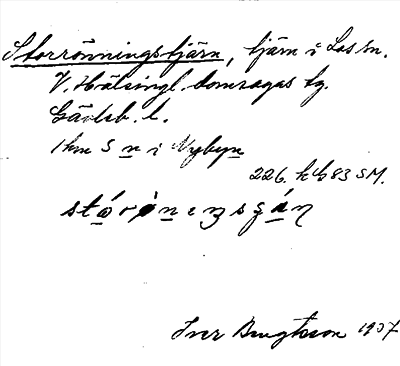 Storrönningstjärn, tjärn i Los sn.
V. Hälsingl. domsagas tg.
Gävleb. l.
1 km S n i Nybyn
226. h 83 SM.
Iver Bengtsson 1937